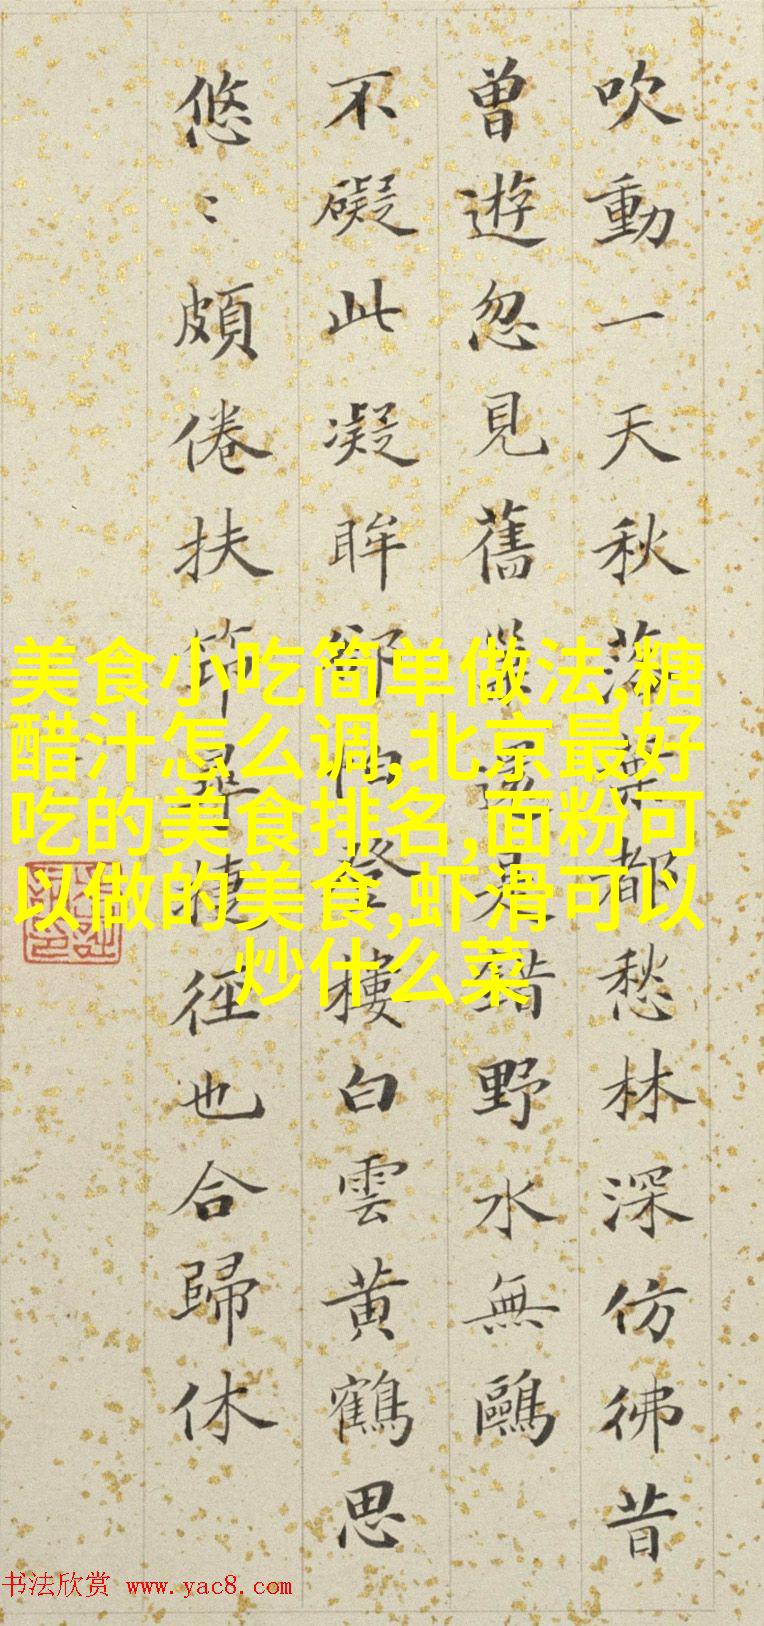 吹動一天秋落葉都愁林深仿彿昔
曾遊忽見舊還是錯野水無鷗
不礙此凝眸卻怕登樓白雲黃鶴思
悠〻頗倦扶筇捷徑也合歸休
美食小吃简单做法,糖
醋汁怎么调,北京最好
吃的美食排名,面粉可
以做的美食,虾滑可以
炒什么菜
书法欣赏 www.yac8.com